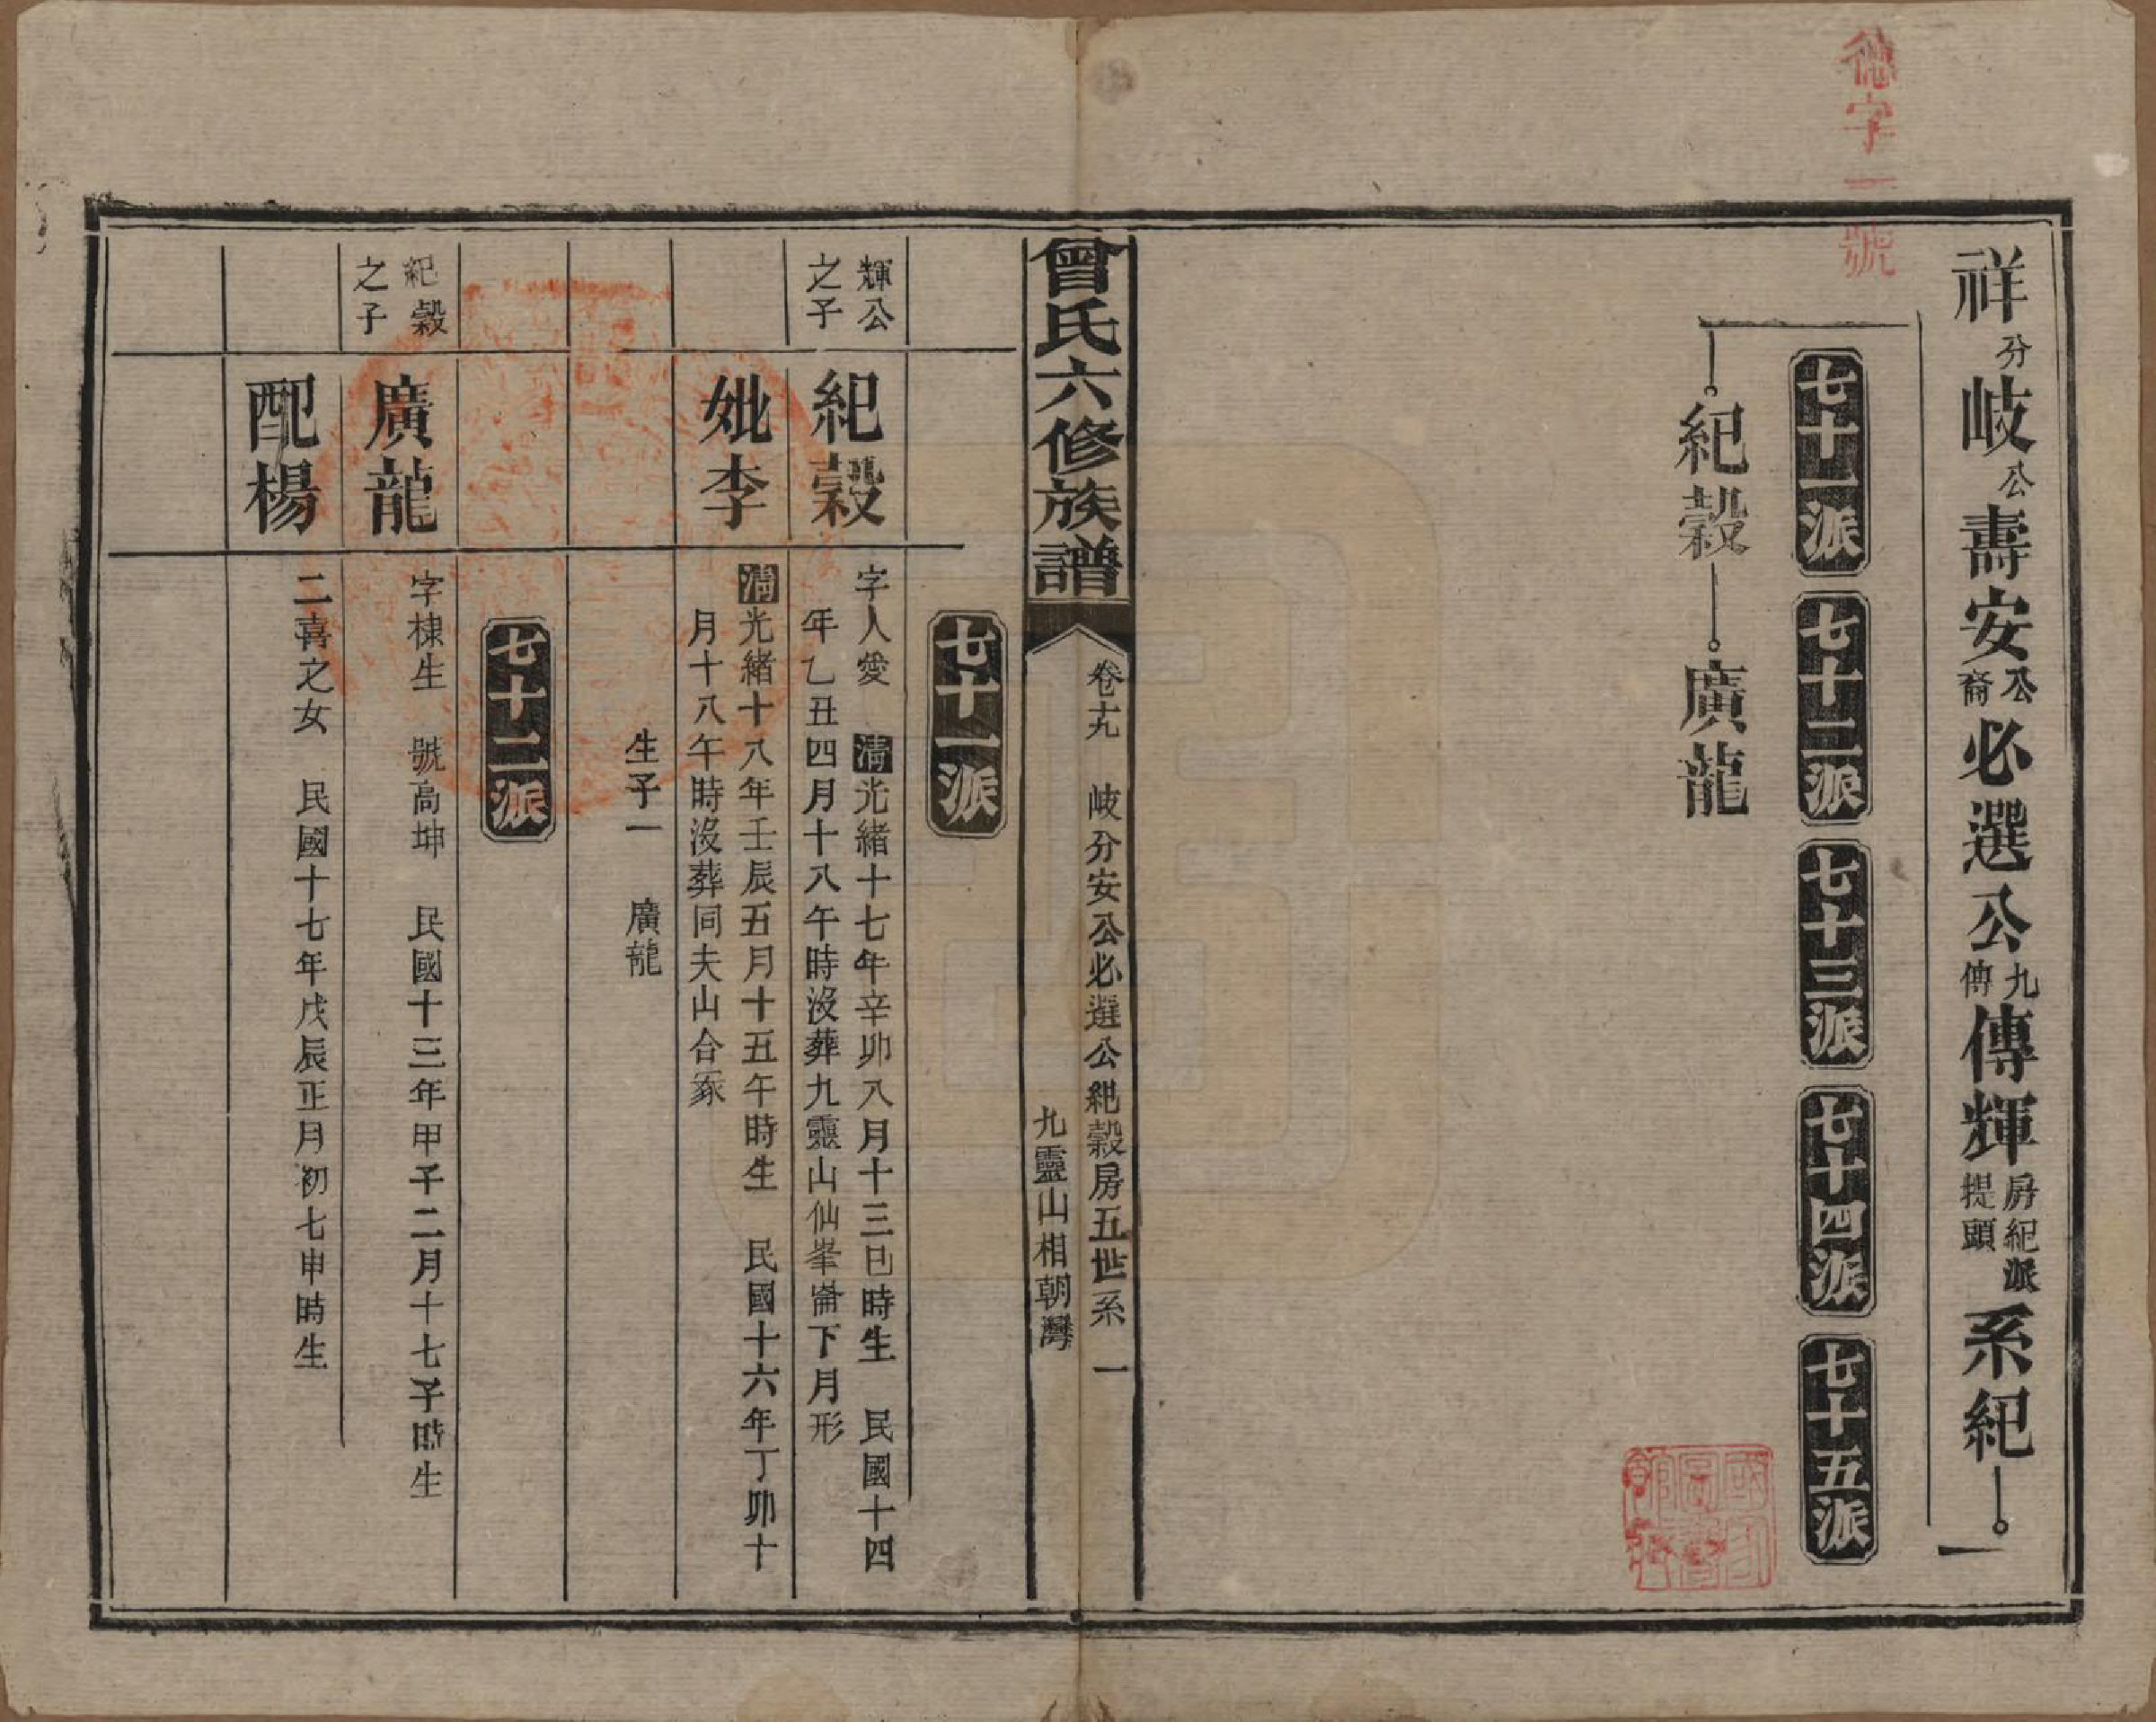 德字一號
祥分岐公壽安公裔必選公九傳傳輝房紀派提頭系紀一
七十一派
七十二派
七十三派
七十四派
七十五派
紀穀
廣龍
曾氏六修族譜
卷十九 岐分安公必選公紀穀房五世系 一
九靈山相朝灣
七十一派
輝公之子
紀穀
字人愛 清光緒十七年辛卯八月十三巳時生 民國十四
年乙丑四月十八午時沒葬九靈山仙峯崙下月形
妣李
清光緒十八年壬辰五月十五午時生 民國十六年丁卯十
月十八午時沒葬同夫山合冢
生子一 廣龍
七十二派
紀穀之子
廣龍
字棣生 號高坤 民國十三年甲子二月十七子時生
配楊
二喜之女 民國十七年戊辰正月初七申時生